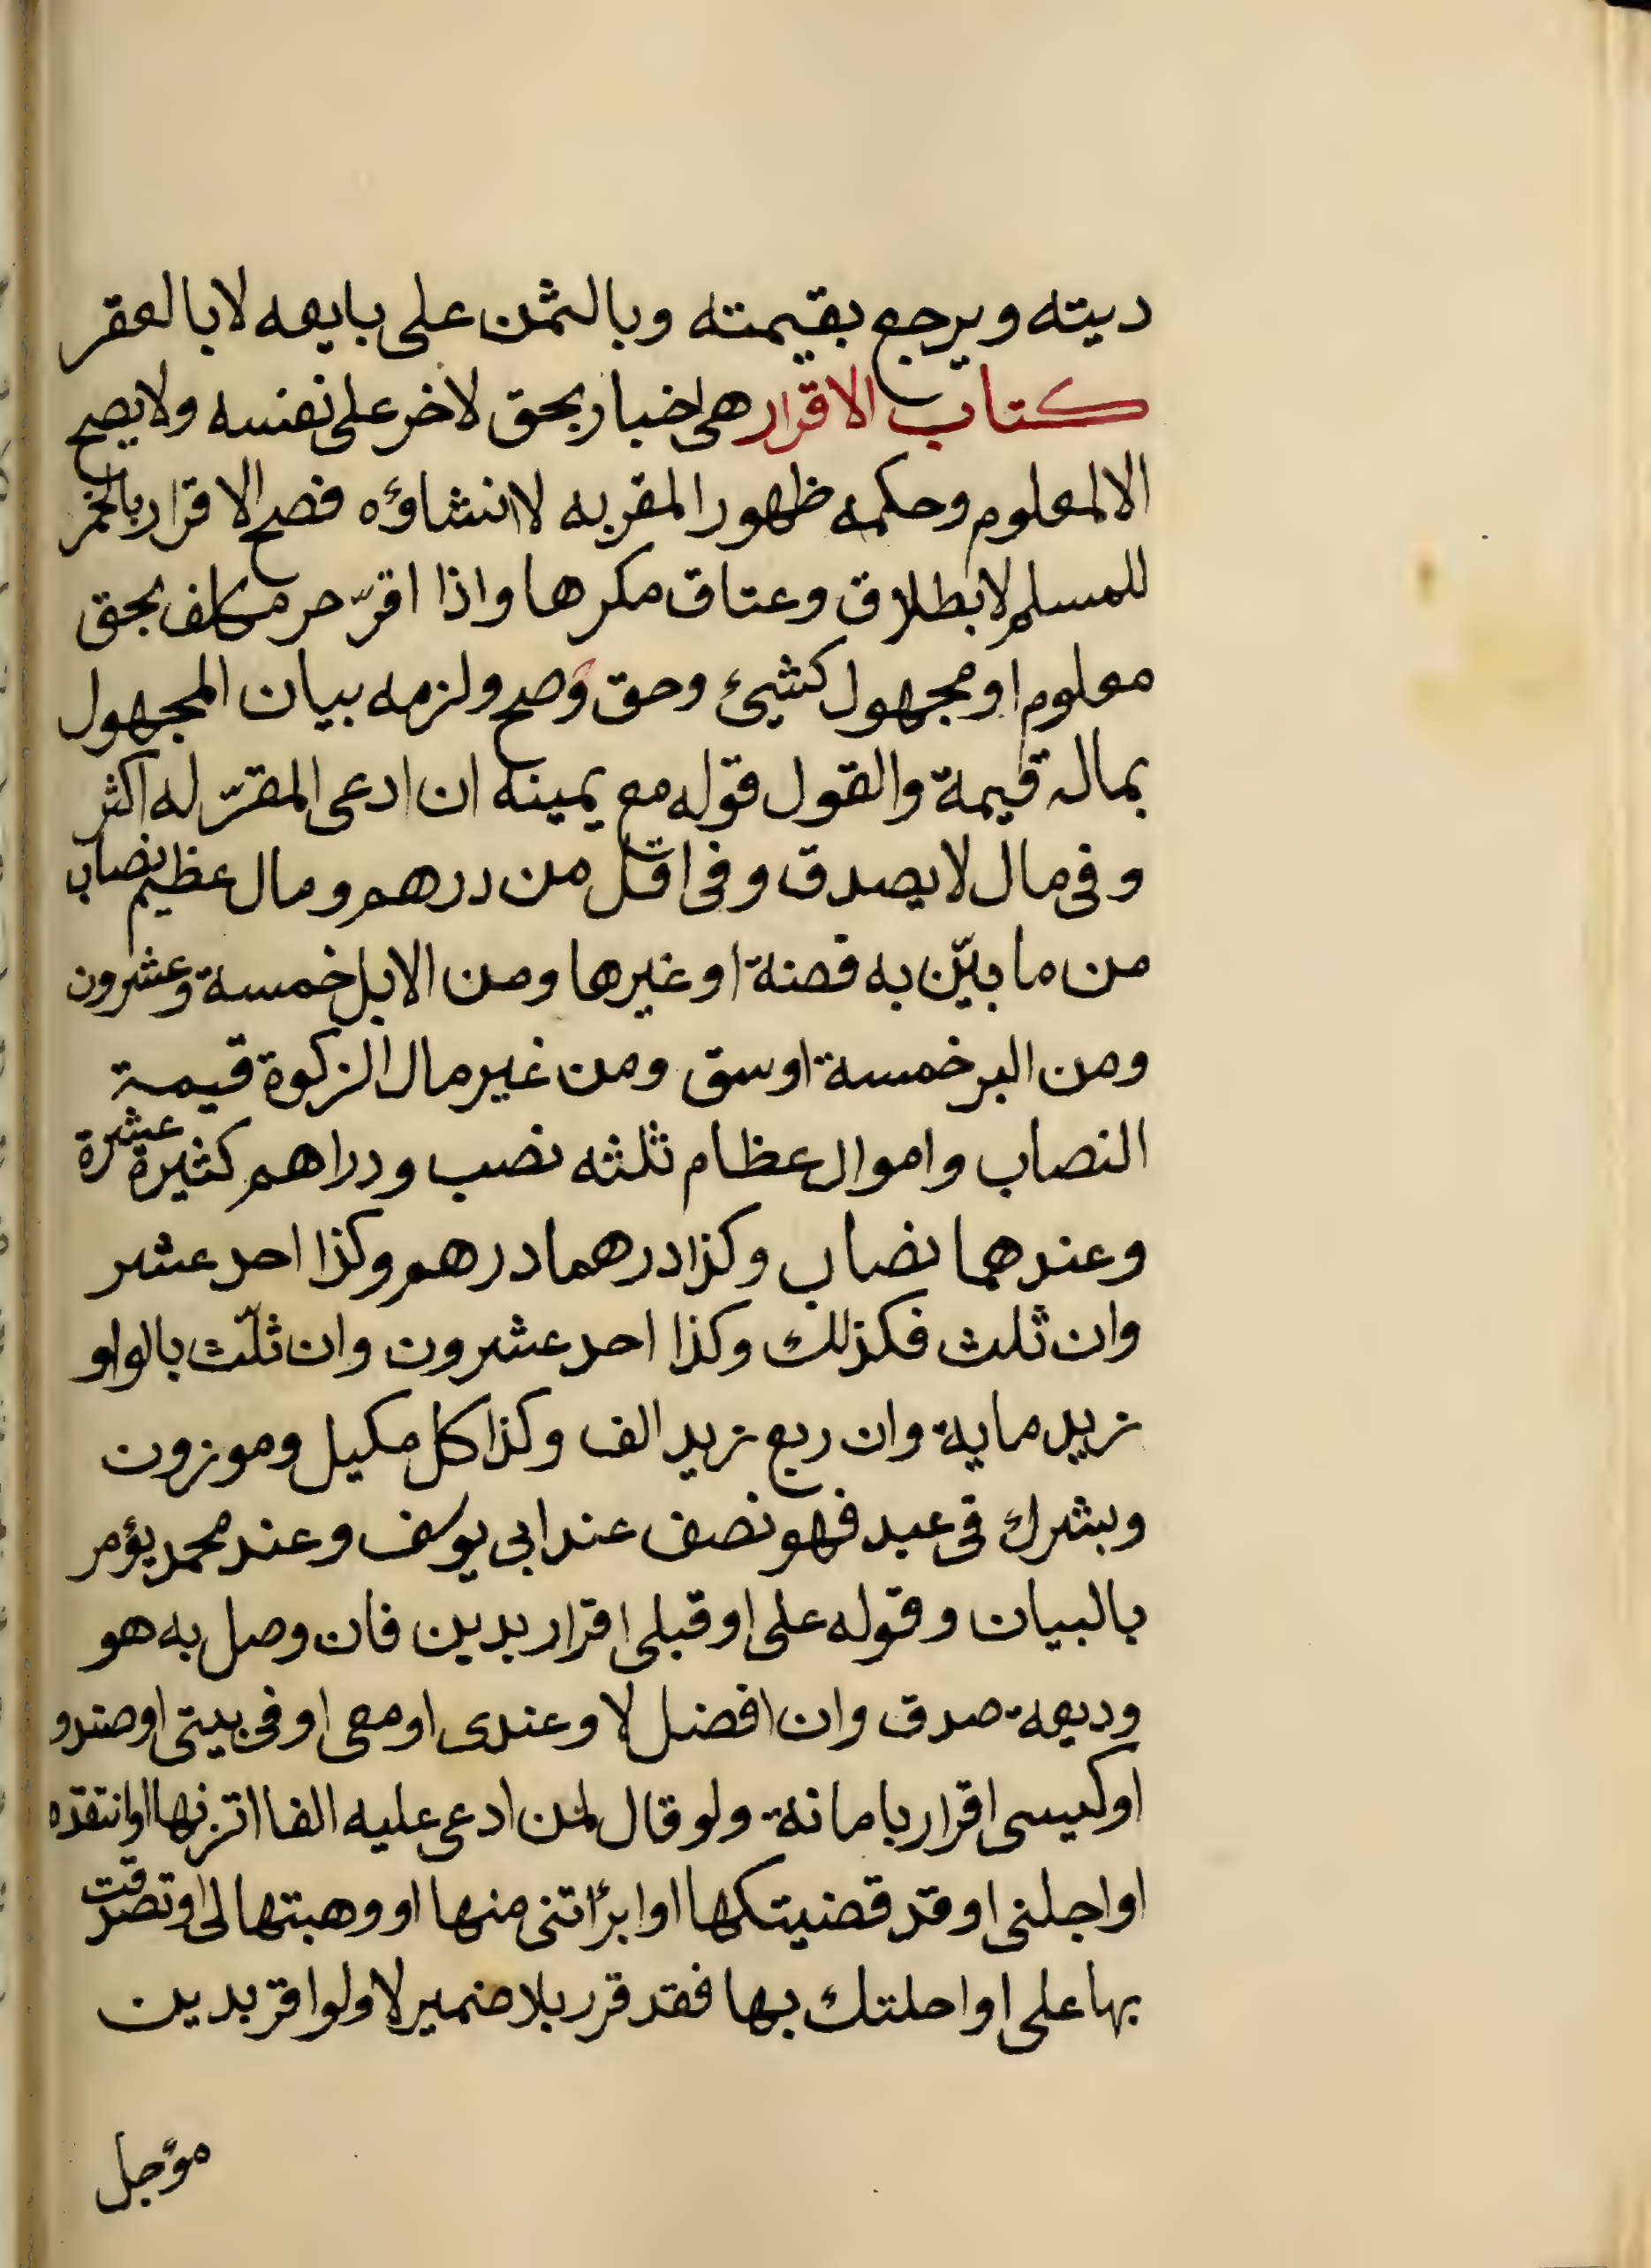 ديته ويرجع بقيمته وبالثمن على بايعه لا بالعقر
كتاب الاقرار هى اخبار بحق لاخر على نفسه ولا يصح
الا لمعلوم وحكمه ظهور المقر به لا انشاؤه فصح الاقرار بالخمر
للمسلم لا بطلاق وعتاق مكرها واذا اقرّ حر مكلف بحق
معلوم او مجهول كشيئ وحق وصح ولزمه بيان المجهول
بماله قيمة والقول قوله مع يمينه ان ادعى المقرّ له اكثر
وفى مال لا يصدق وفى اقل من درهم ومال عظيم نصاب
من ما بيّن به فضة او غيرها ومن الابل خمسة وعشرون
ومن البر خمسة اوسق ومن غير مال الزكوة قيمة
النصاب واموال عظام ثلثه نصب ودراهم كثيرة عشرة
وعندهما نصاب وكذا درهما درهم وكذا احد عشر
وان ثلث فكذلك وكذا احد عشرون وان ثلّث بالواو
زيد ماية وان ربع زيد الف وكذا كل مكيل وموزون
وبشرك فى عبد فهو نصف عند ابى يوسف وعند محمد يؤمر
بالبيان وقوله على او قبلى اقرار بدين فان وصل به هو
وديعة صدق وان افضل لا وعندى او معى او فى بيتى او صندو
او كيسى اقرار بامانة ولو قال لمن ادعى عليه الفا اتزنها او انتقده
او اجلنى او قد قضيتكها او ابرأتنى منها او وهبتها لى او تصدقت
بها على او احلتك بها فقد قرر بلا ضمير لا ولو اقر بدين
مؤجل